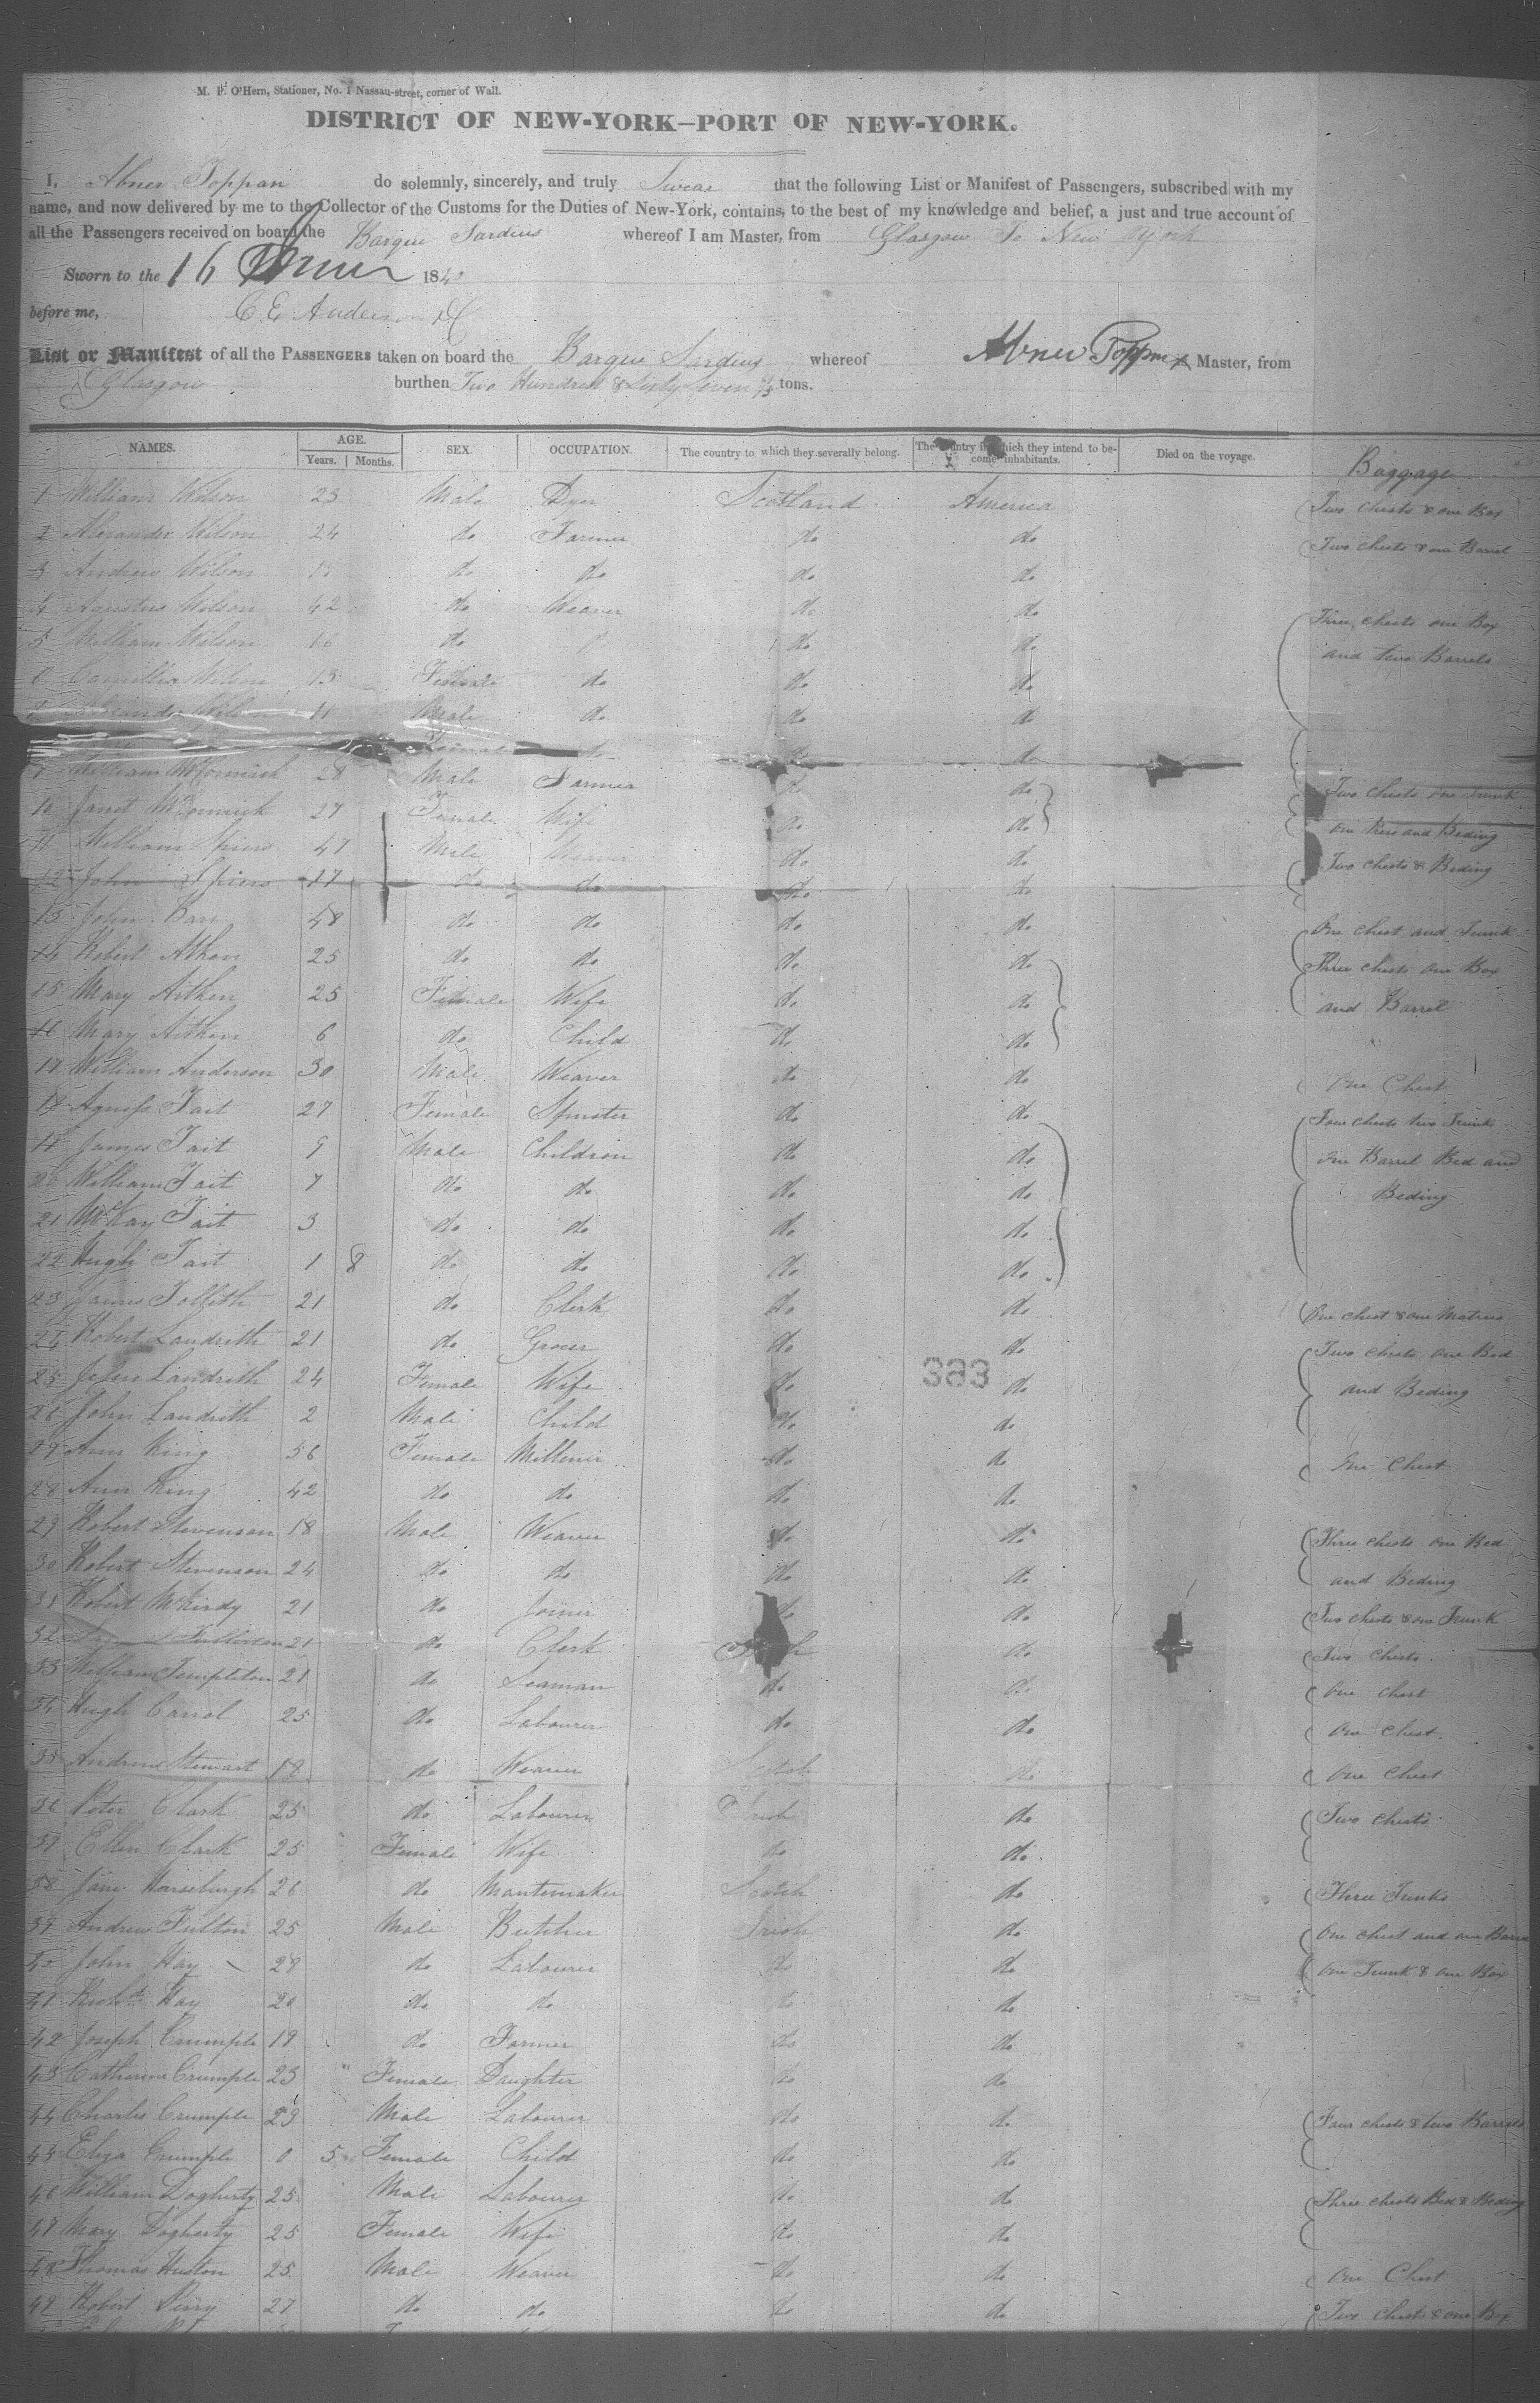 M. P. O'Hern, Stationer, No. 1 Nassau-street, corner of Wall.
DISTRICT OF NEW-YORK—PORT OF NEW-YORK.
I, Abner Toppan do solemnly, sincerely, and truly Swear that the following List or Manifest of Passengers, subscribed with my
name, and now delivered by me to the Collector of the Customs for the Duties of New-York, contains, to the best of my knowledge and belief, a just and true account of
all the Passengers received on board the Barque Sardius whereof I am Master, from Glasgow To New York
Sworn to the 16 1840
before me, C E Anderson
List or Manifest of all the PASSENGERS taken on board the Barque Sardius whereof Abner Toppan Master, from
Glasgow burthen Two Hundred & Sixty Seven tons.
NAMES. AGE. SEX. OCCUPATION. The country to which they severally belong. The country in which they intend to be- Died on the voyage. Baggage
Years. Months. come inhabitants.
1 William Wilson 23 Male Dyer Scotland America Two chests & one Box
2 Alexander Wilson 24 do Farmer do do Two chests & one Barrel
3 Andrew Wilson do do do do
4 Wilson 42 do Weaver do do Three chests one Box
5 William Wilson 16 do do do and two Barrels
6 Camillia Wilson 13 Female do do do
Wilson 11 Male do do do
Female do do do
William McCormick 28 Male Farmer do do Two chests one Trunk
10 Janet McCormick 27 Female Wife do do one and Beding
11 William Spiers 47 Male Weaver do do Two chests & Beding
12 John Spiers 17 do do do do
13 John Barr 48 do do do do One chest and Trunk
14 Robert Aitken 25 do do do do Three chests one Box
15 Mary Aitken 25 Female Wife do do and Barrel
16 Mary Aitken 6 do Child do do
17 William Anderson 30 Male Weaver do do One Chest
18 Agness Tait 27 Female Spinster do do Four chests two Trunks
19 James Tait 9 Male Children do do one Barrel Bed and
20 William Tait 7 do do do do Beding
21 McKay Tait 3 do do do do
22 Hugh Tait 1 8 do do do do
23 James 21 do Clerk do do One chest & one Matress
24 Robert Landrith 21 do Grocer do do Two chests one Bed
383
25 Landrith 24 Female Wife do do and Beding
26 John Landrith 2 Male Child do do
27 Ann King 56 Female Milliner do do One Chest
28 Ann King 42 do do do do
29 Robert Stevenson 18 Male Weaver do do Three chests one Bed
30 Robert Stevenson 24 do do do do and Beding
31 Robert McKirdy 21 do Joiner do do Two chests & one Trunk
32 Fullerton 21 do Clerk do Two Chests
33 William Templeton 21 do Seaman do do One chest
34 Hugh Carrol 25 do Labourer do do One Chest
35 Andrew Stewart 18 do Weaver Scotch do One Chest
36 Peter Clark 25 do Labourer Irish do Two Chests
37 Ellen Clark 25 Female Wife do do
38 Jane Horseburgh 26 do Mantemaker Scotch do Three Trunks
39 Andrew Fulton 25 Male Butcher Irish do One chest and one Barrel
40 John Hay 28 do Labourer do do One Trunk & one Box
41 Hay 20 do do do do
42 Joseph Crumple 19 do Farmer do do
43 Catherine Crumple 23 Female Daughter do do
44 Charles Crumple 29 Male Labourer do do Four chests & two Barrels
45 Eliza Crumple 0 5 Female Child do do
46 William Dogherty 25 Male Labourer do do Three chests Bed & Beding
47 Mary Dogherty 25 Female Wife do do
48 Thomas Huston 25 Male Weaver do do One Chest
49 Robert Perry 27 do do do do Two chests & one Box